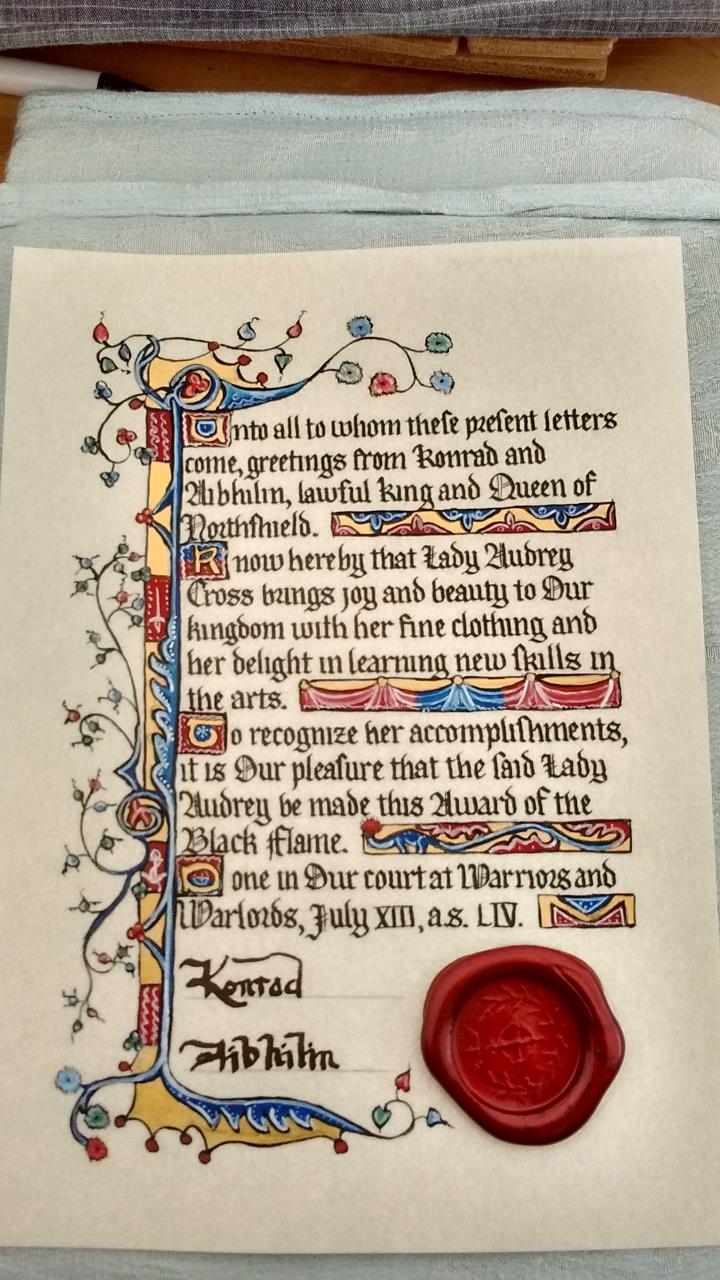 Unto all to whom theſe preſent letters
come, greetings from Konrad and
Aibhilin, lawful King and Queen of
Northſhield.
Know hereby that Lady Audrey
Cross brings joy and beauty to Our
kingdom with her fine clothing and
her delight in learning new ſkills in
the arts.
To recognize her accompliſhments,
it is Our pleaſure that the ſaid Lady
Audrey be made this Award of the
Black fflame.
Done in Our court at Warriors and
Warlords, July XIII, a.s. LIV.
Konrad
Aibhilin